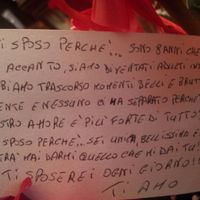 TI SPOSO PERCHÈ!.. SONO 8 ANNI CHE
ACCANTO, SIAMO DIVENTATI ADULTI IN
BIAMO TRASCORSO MOMENTI BELLI E BRUT
ENSE E NESSUNO CI HA SEPARATO PERCHÈ
STRO AMORE È PIÙ FORTE DI TUTTO
SPOSO PERCHÈ.. SEI UNICA, BELLISSIMA E
TRÀ MAI DARMI QUELLO CHE MI DAI TU!
TI SPOSEREI OGNI GIORNO!!
TI AMO